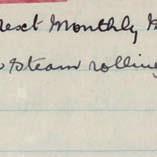 next Monthly
Steam rolling